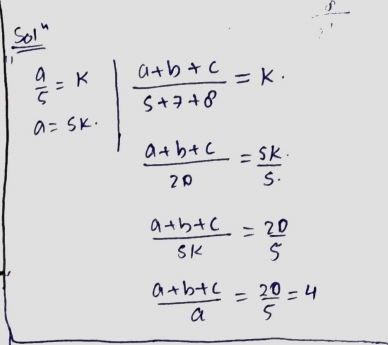 Solⁿ
a/5 = K
a = 5K.
(a+b+c)/(5+7+8) = K.
(a+b+c)/20 = 5K./5.
(a+b+c)/5K = 20/5
(a+b+c)/a = 20/5 = 4